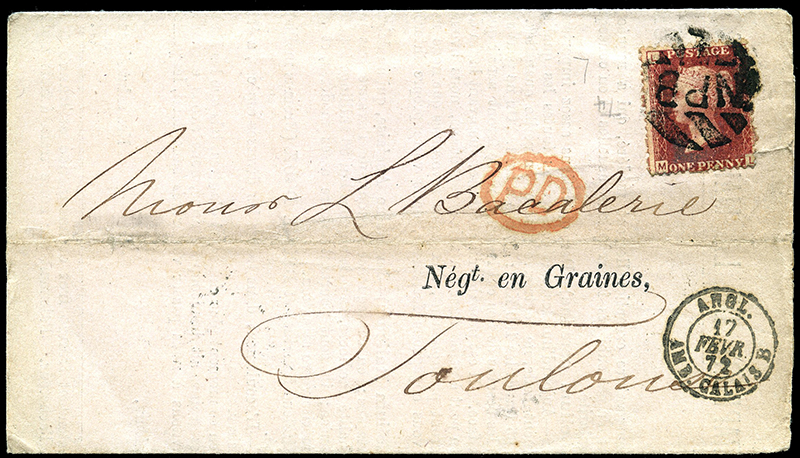 POSTAGE
ONE PENNY
M L
Monsr L Bacalerie
PD
Négt. en Graines,
Toulouse
ANGL.
17
FEVR
72
AMB. CALAIS B